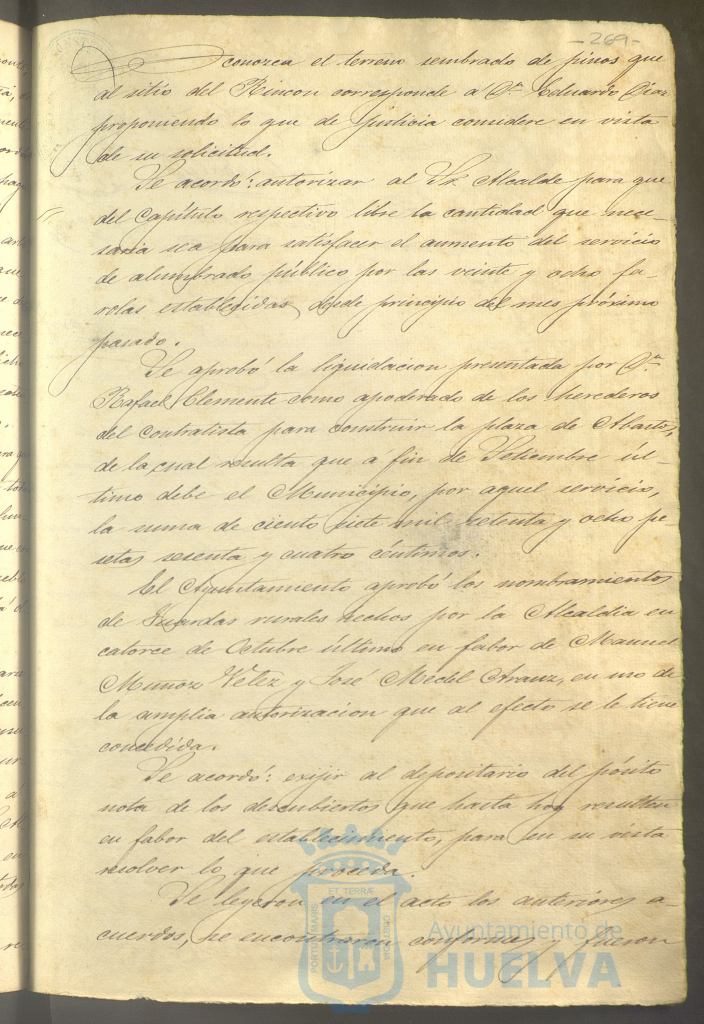 -269-
conozca el terreno sembrado de pinos que
al sitio del Rincon corresponde a Dn. Eduardo Diaz
proponiendo lo que de justicia considere en vista
de su solicitud.
Se acordó: autorizar al Sr. Alcalde para que
del Capítulo respectivo libre la cantidad que nece-
saria sea para satisfacer el aumento del servicio
de alumbrado público por las veinte y ocho fa-
rolas establecidas desde principio del mes próximo
pasado.
Se aprobó la liquidacion presentada por Dn.
Rafael Clemente como apoderado de los herederos
del Contratista para construir la plaza de Abastos,
de la cual resulta que á fin de Setiembre úl-
timo debe el Municipio, por aquel servicio,
la suma de ciento siete mil setenta y ocho pe-
setas sesenta y cuatro céntimos.
El Ayuntamiento aprobó los nombramientos
de Guardas rurales hechos por la Alcaldia en
catorce de Octubre último en fabor de Manuel
Muñoz Velez y José Medel Arauz, en uso de
la amplia autorizacion que al efecto se le tiene
concedida.
Se acordó: exijir al depositario del pósito
nota de los descubiertos que hasta hoy resulten
en fabor del establecimiento, para en su vista
resolver lo que proceda.
Se leyeron en el acto los anteriores a-
cuerdos, se encontraron conformes y fueron
PORTUS MARIS ET TERRÆ CUSTODIA
Ayuntamiento de
HUELVA